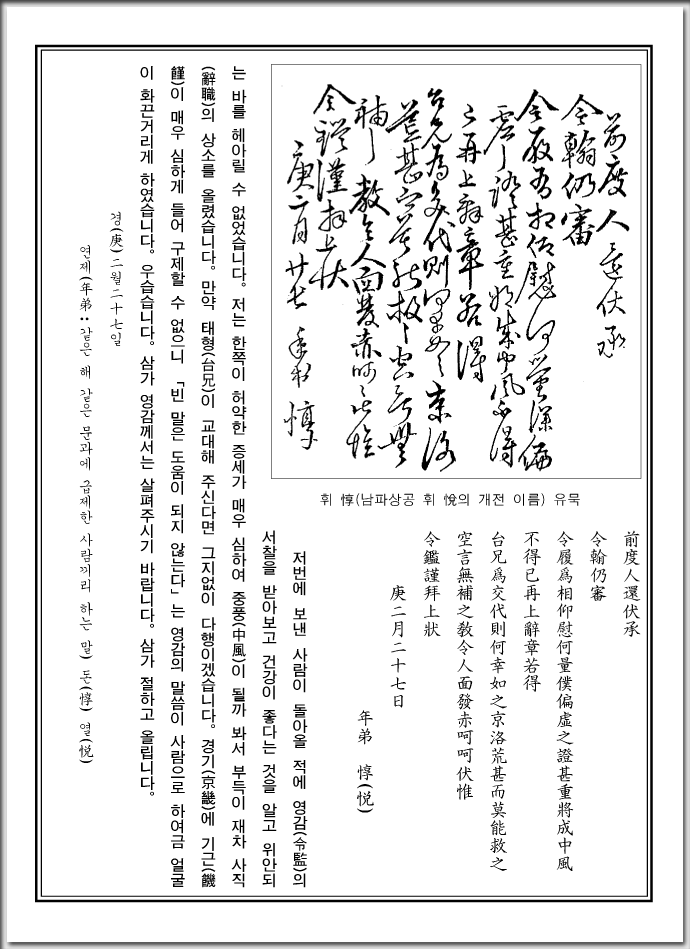 前度人還伏承
令翰仍審
令履爲相仰慰何量僕偏
虛之證甚重將成中風不得
已再上辭章若得
台兄爲交代則何幸如之京洛
荒甚而莫能救之空言無
補之敎令人面發赤呵呵伏惟
令鑑謹拜上狀
庚二月廿七 年弟 惇
휘 惇(남파상공 휘 悅의 개전 이름) 유묵
前度人還伏承
令翰仍審
令履爲相仰慰何量僕偏虛之證甚重將成中風
不得已再上辭章若得
台兄爲交代則何幸如之京洛荒甚而莫能救之
空言無補之敎令人面發赤呵呵伏惟
令鑑謹拜上狀
庚二月二十七日
年弟 惇(悅)
저번에 보낸 사람이 돌아올 적에 영감(令監)의
서찰을 받아보고 건강이 좋다는 것을 알고 위안되
는 바를 헤아릴 수 없었습니다. 저는 한쪽이 허약한 증세가 매우 심하여 중풍(中風)이 될까 봐서 부득이 재차 사직
(辭職)의 상소를 올렸습니다. 만약 태형(台兄)이 교대해 주신다면 그지없이 다행이겠습니다. 경기(京畿)에 기근(饑
饉)이 매우 심하게 들어 구제할 수 없으니 「빈 말은 도움이 되지 않는다」는 영감의 말씀이 사람으로 하여금 얼굴
이 화끈거리게 하였습니다. 우습습니다. 삼가 영감께서는 살펴주시기 바랍니다. 삼가 절하고 올립니다.
경(庚)二월二十七일
연제(年弟:같은 해 같은 문과에 급제한 사람끼리 하는 말) 돈(惇) 열(悅)